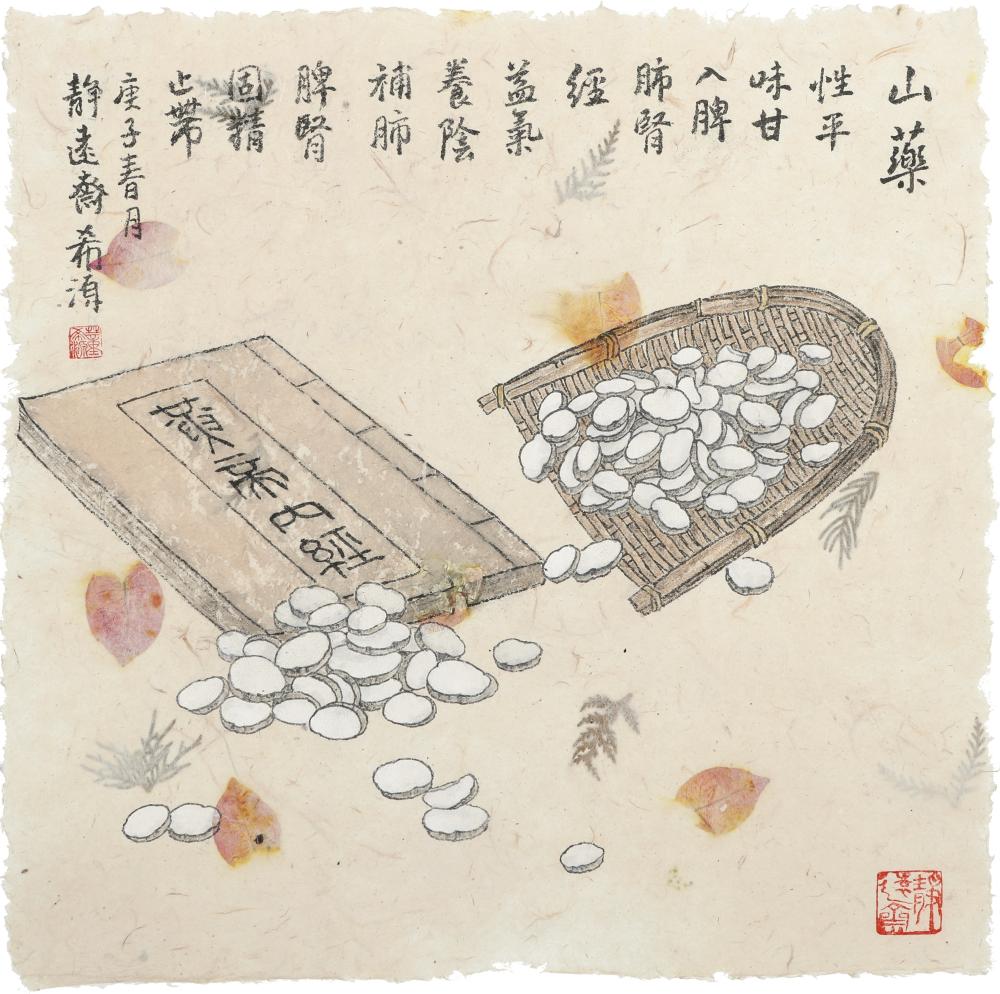 山藥
性平
味甘
入脾
肺腎
經
益氣
養陰
補肺
脾腎
固精
止帶
庚子春月
靜遠齋希源
靜遠齋